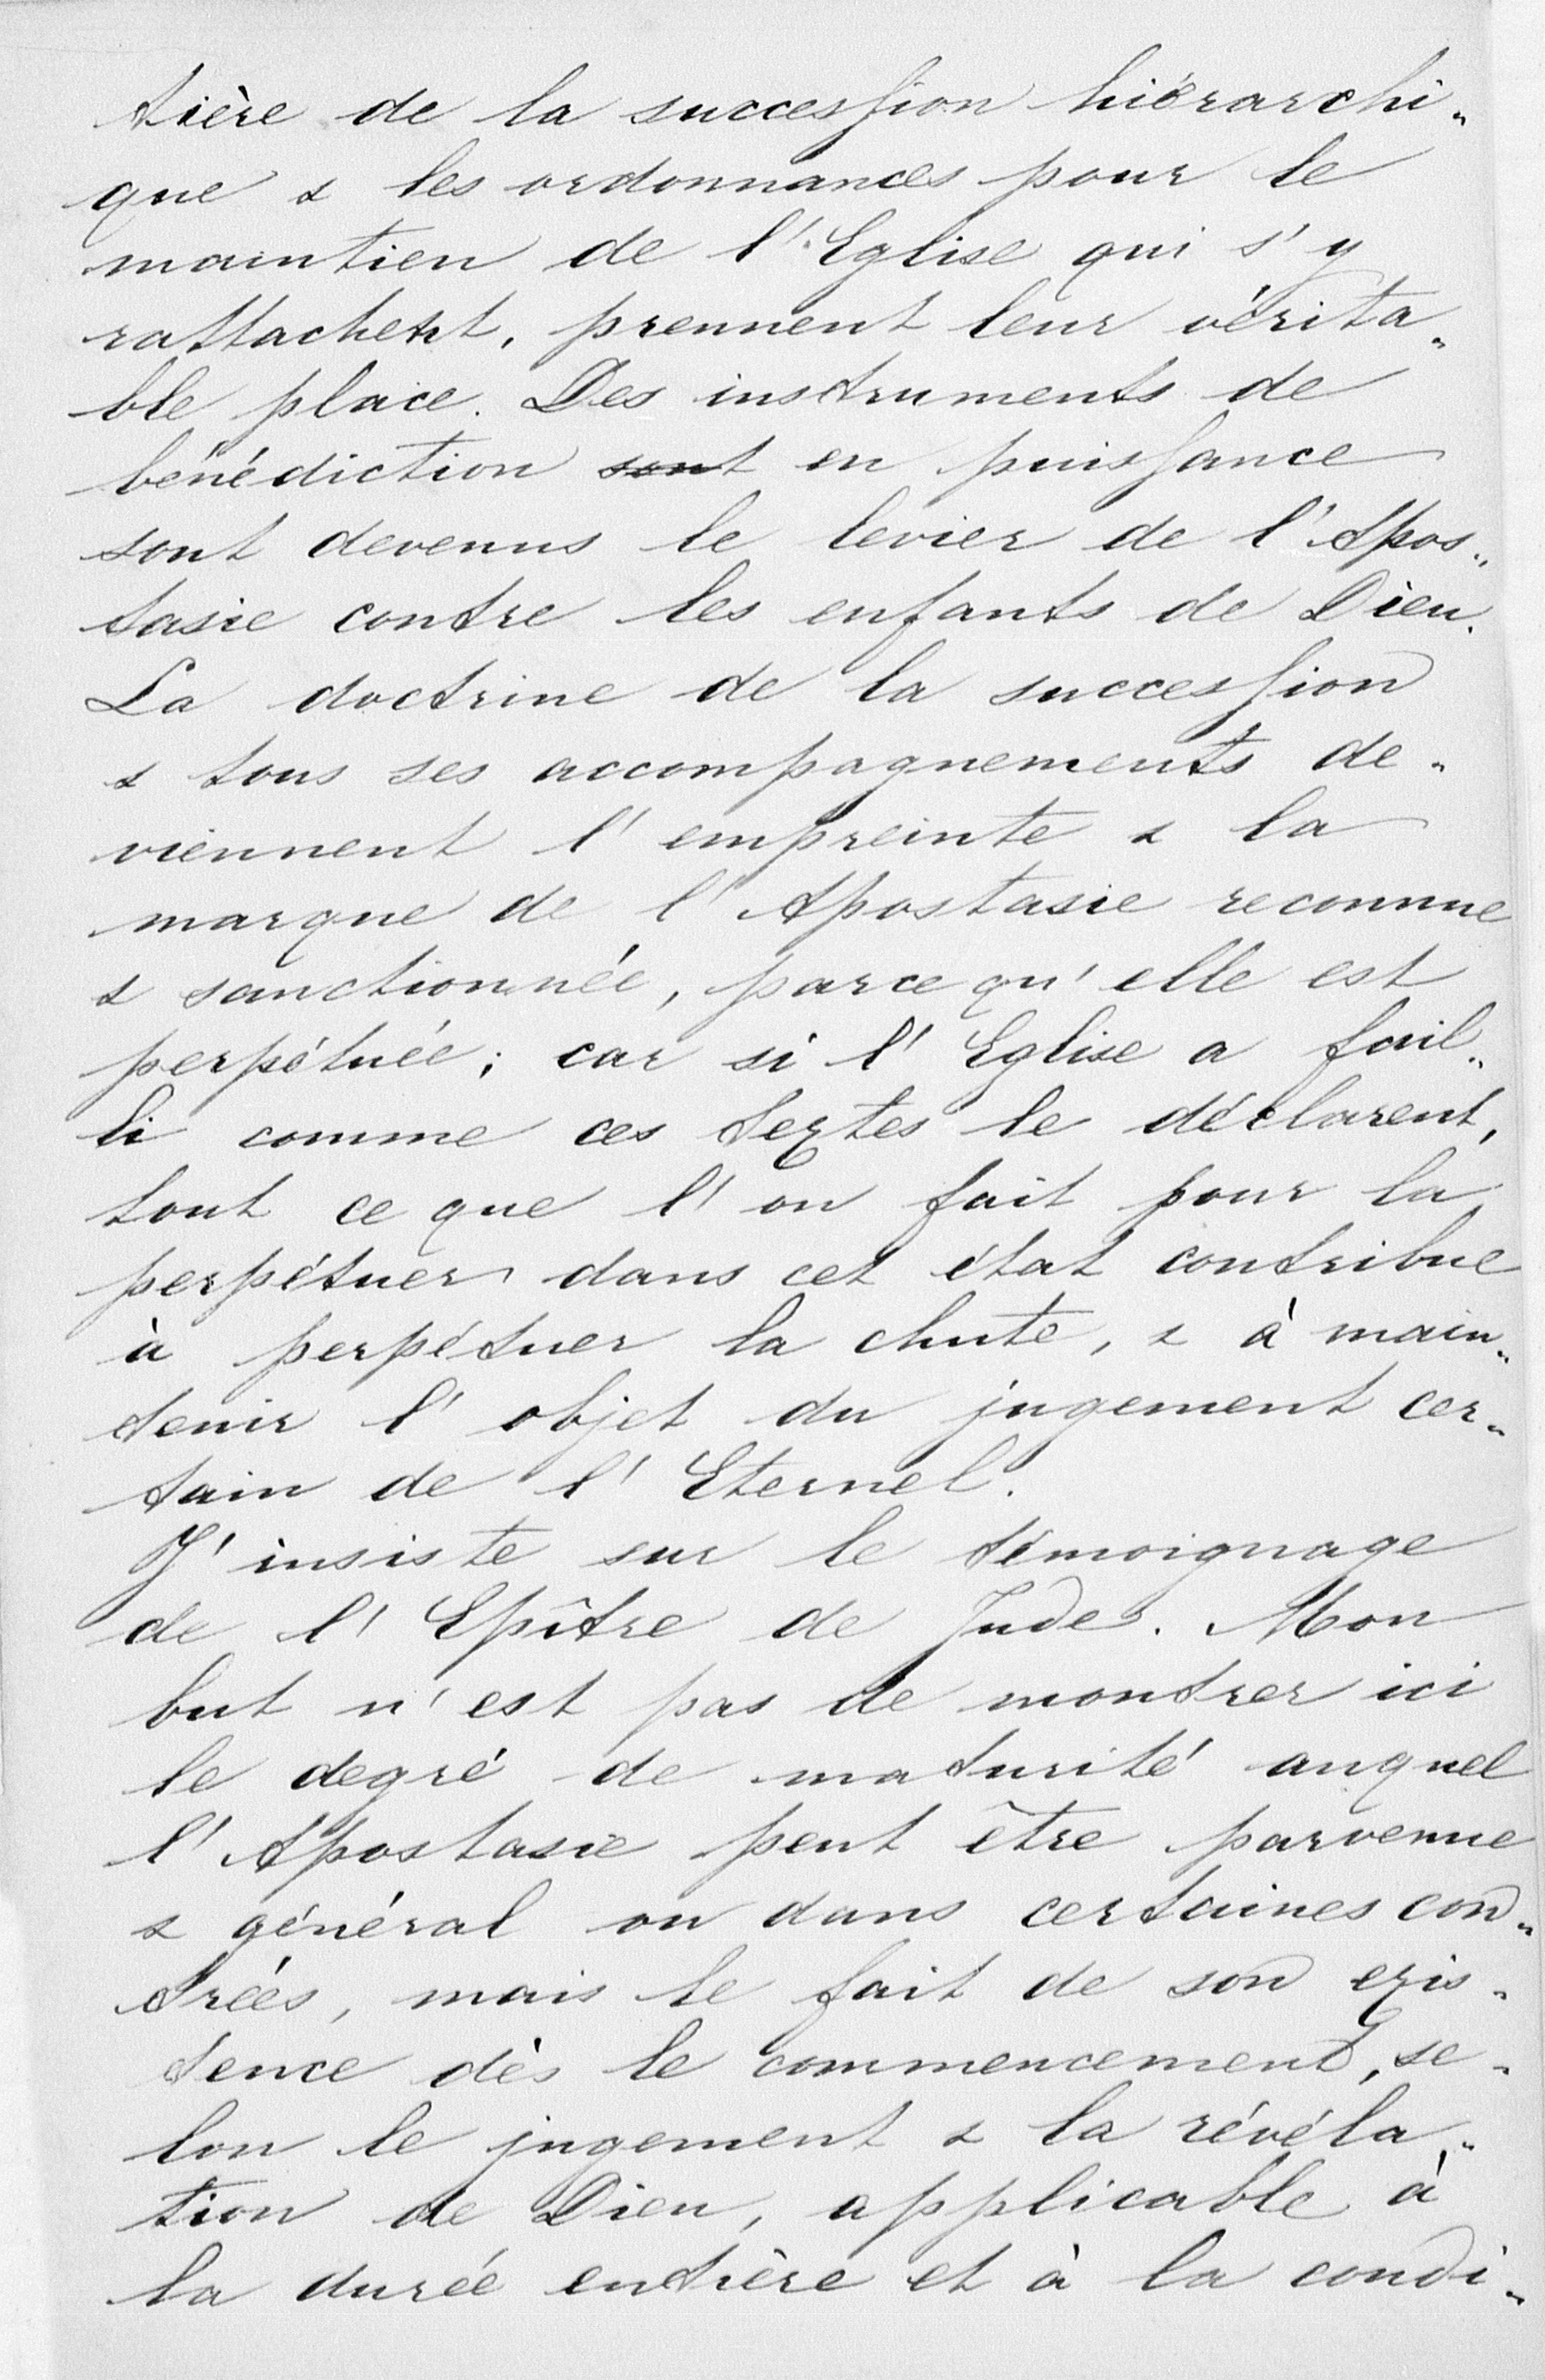 tière de la succession hiérarchi-
que & les ordonnances pour le
maintien de l'Eglise qui s'y
rattachent, prennent leur vérita-
ble place. Des instruments de
bénédiction ~~sont~~ en puissance
sont devenus le levier de l'Apos-
tasie contre les enfants de Dieu.
La doctrine de la succession
& tous ses accompagnements de-
viennent l'empreinte & la
marque de l'Apostasie reconnue
& sanctionnée, parce qu'elle est
perpétuée; car si l'Eglise a fail-
li comme ces textes le déclarent,
tout ce que l'on fait pour la
perpétuer dans cet état contribue
à perpétuer la chute, & à main-
tenir l'objet du jugement cer-
tain de l'Eternel.
J'insiste sur le témoignage
de l'Epître de Jude. Mon
but n'est pas de montrer ici
le degré de maturité auquel
l'Apostasie peut être parvenue
& général ou dans certaines con-
trées, mais le fait de son exis-
tence dès le commencement, se-
lon le jugement & la révéla-
tion de Dieu, applicable à
la durée entière et à la condi-